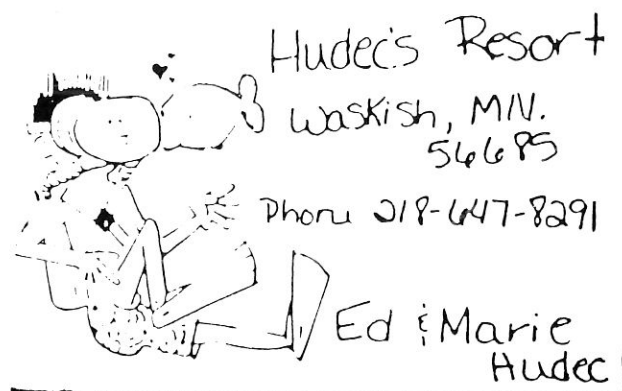 Hudec's Resort
Waskish, MN.
56685
Phone 218-647-8291
Ed & Marie
Hudec